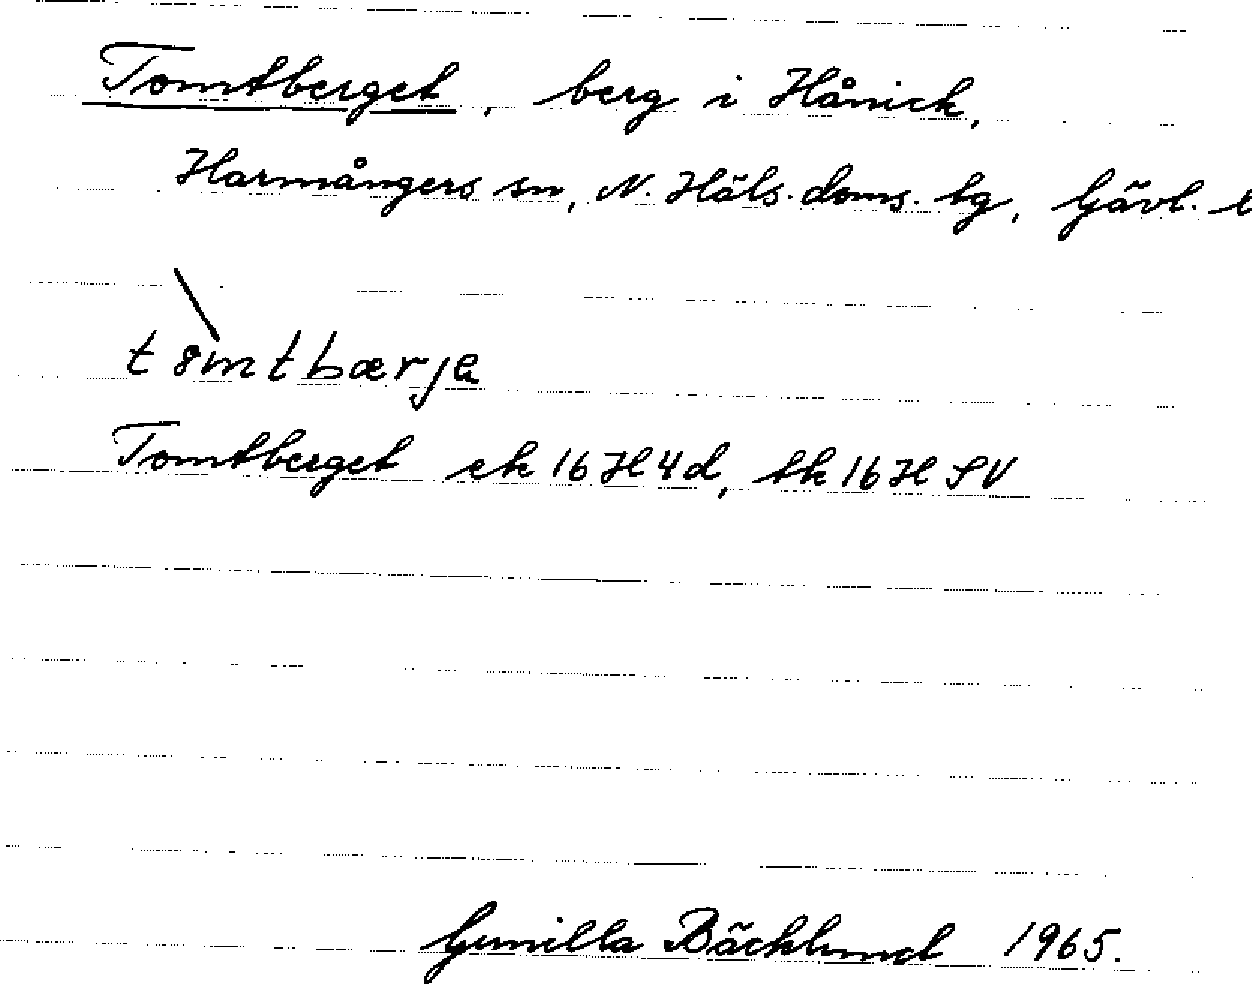 Tomtberget, berg i Hånick,
Harmångers sn, N. Häls. doms. lg, Gävl. l
t8mtbærja
Tomtberget ek 16 H 4 d, tk 16 H SV
Gunilla Bäcklund 1965.